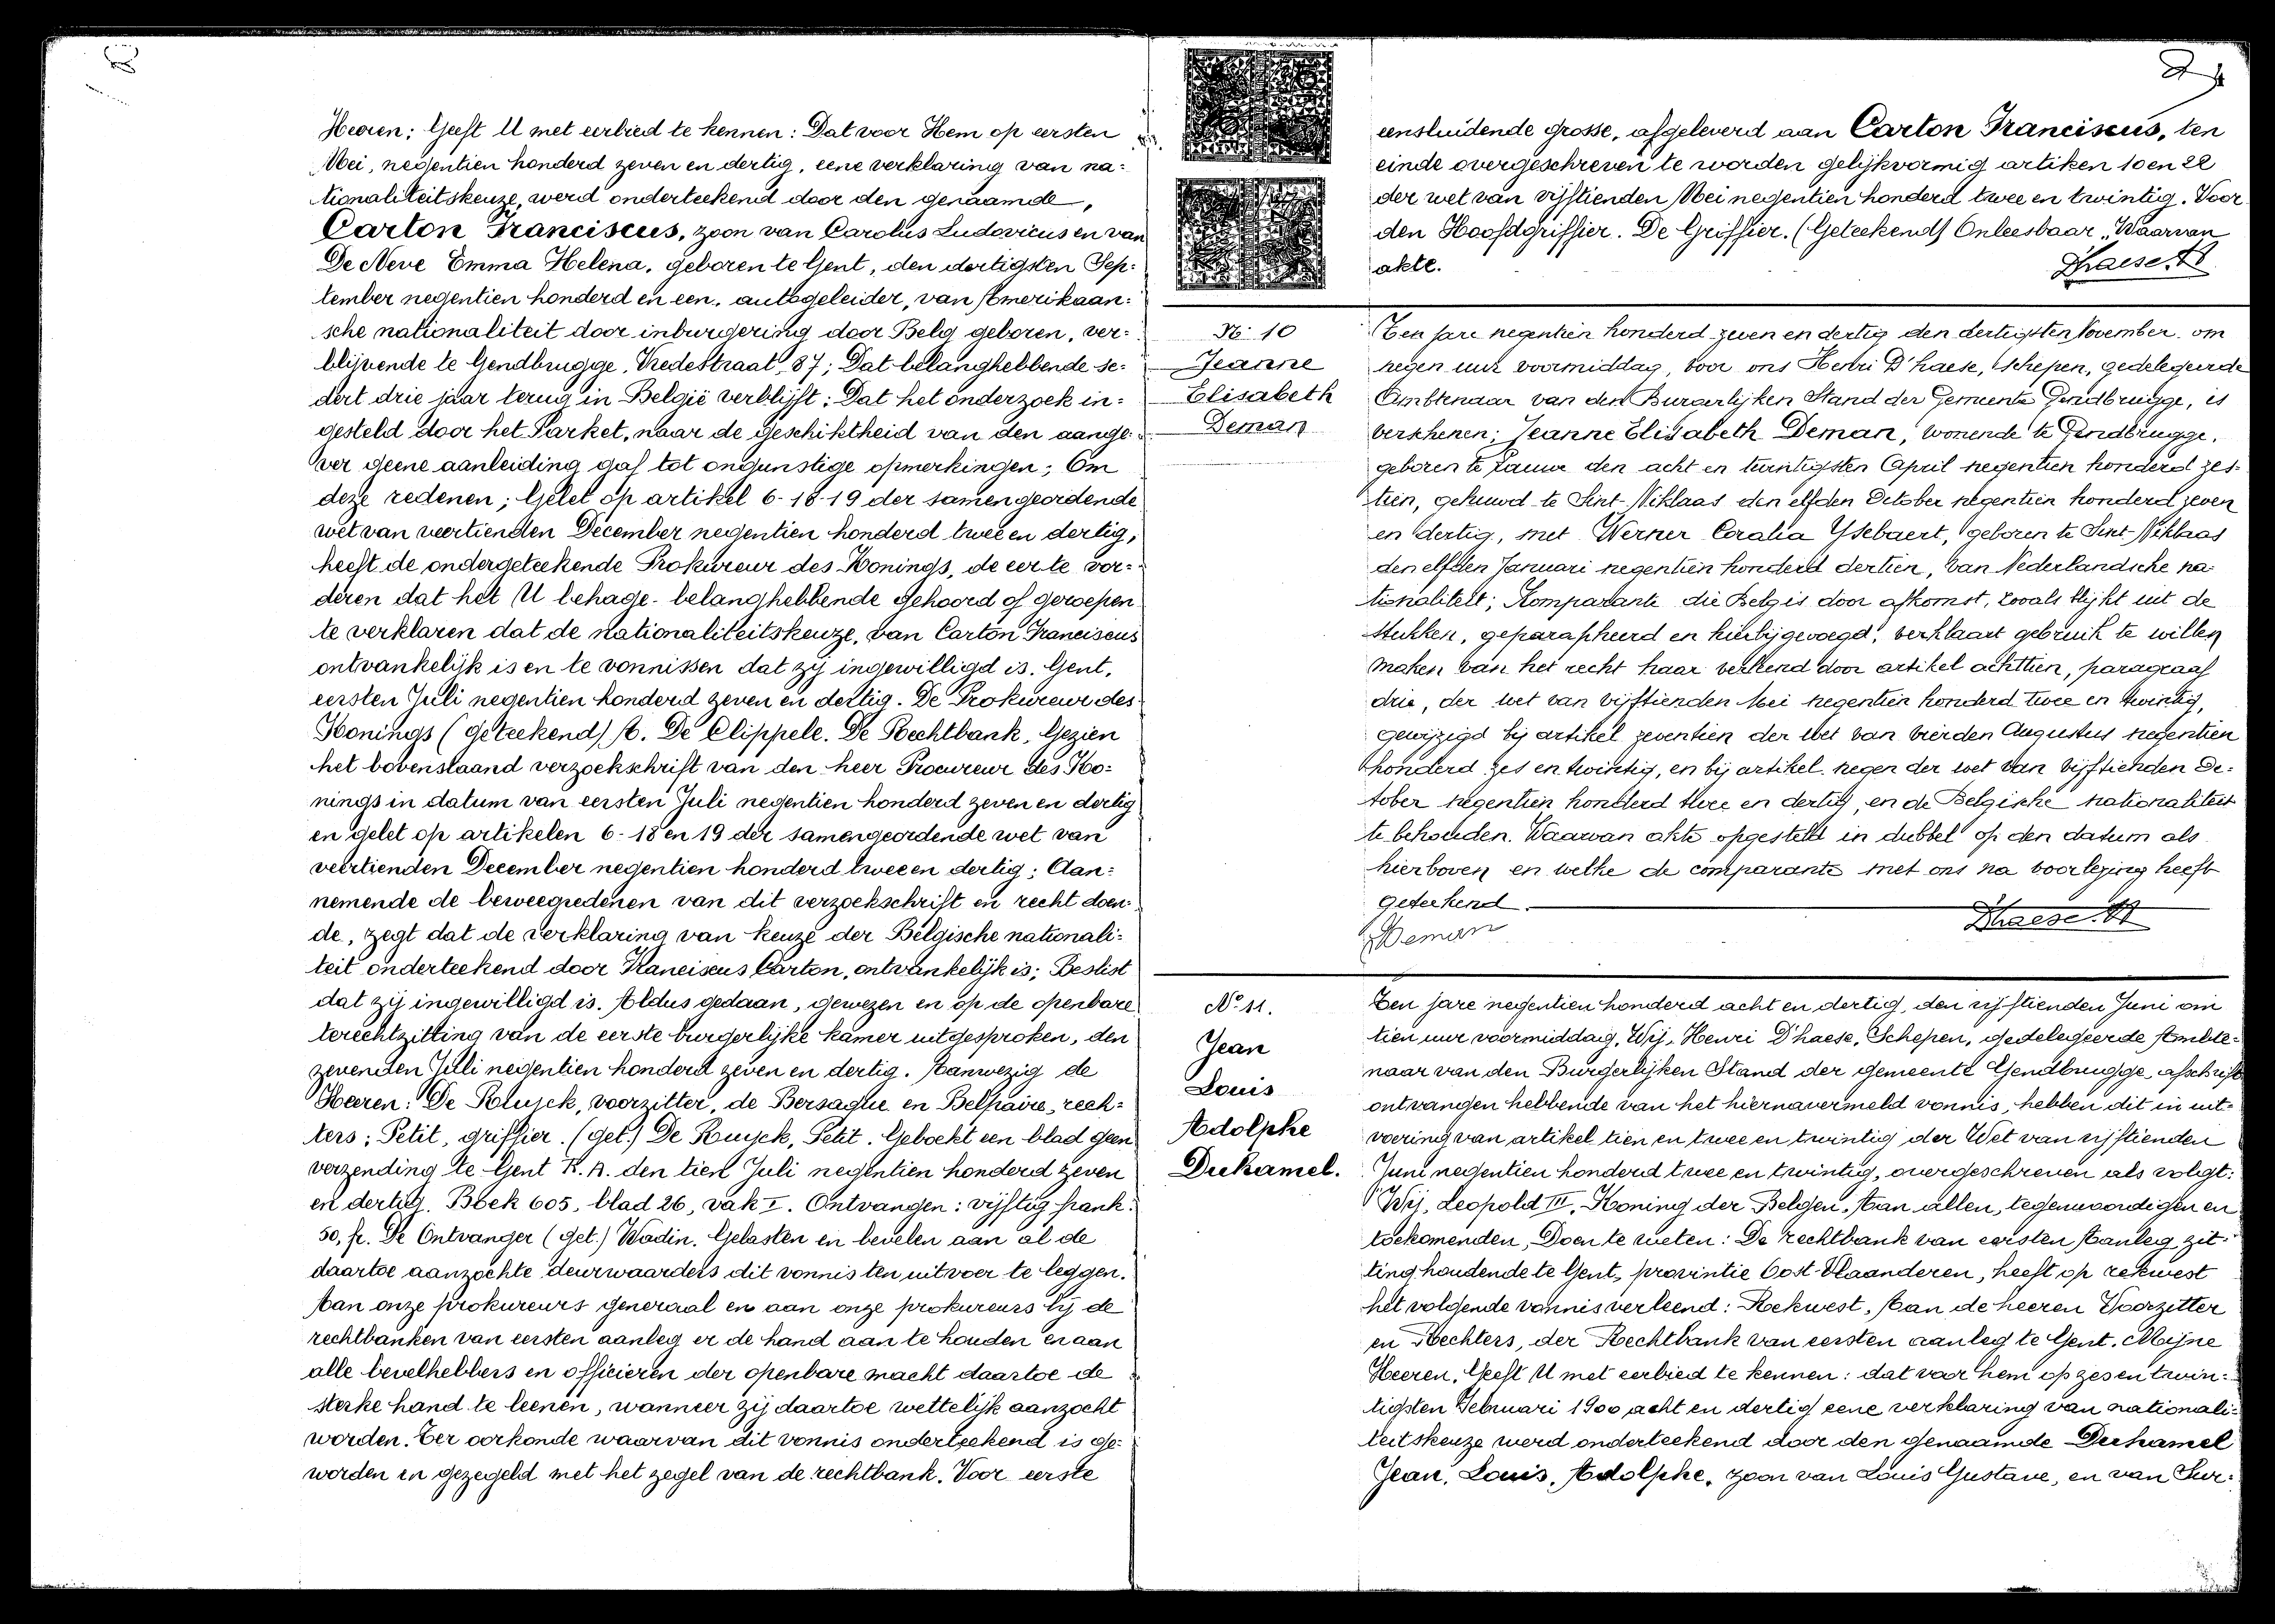 Heeren; Geeft U met eerbied te kennen: Dat voor Hem op eersten
Mei, negentien honderd zeven en dertig, eene verklaring van na:
tionaliteitskeuze, werd onderteekend door den genaamde,
Carton Franciscus, zoon van Carolus Ludovicus en van
De Neve Emma Helena, geboren te Gent, den dertigsten Sep:
tember negentien honderd en een, autogeleider, van Amerikaan:
sche nationaliteit door inburgering door Belg geboren, ver:
blijvende te Gendbrugge, Vredestraat, 87; Dat belanghebbende se:
dert drie jaar terug in België verblijft; Dat het onderzoek in:
gesteld door het Parket, naar de geschiktheid van den aange:
ver geene aanleiding gaf tot ongunstige opmerkingen; Om
deze redenen; Gelet op artikel 6-18-19 der samengeordende
wet van veertienden December negentien honderd twee en dertig,
heeft de ondergeteekende Prokureur des Konings, de eer te vor:
deren dat het U behage- belanghebbende gehoord of geroepen
te verklaren dat de nationaliteitskeuze, van Carton Franciscus
ontvankelijk is en te vonnissen dat zij ingewilligd is. Gent,
eersten Juli negentien honderd zeven en dertig. De Prokureur des
Konings (geteekend) A. De Clippele. De Rechtbank, Gezien
het bovenstaand verzoekschrift van den heer Procureur des Ko:
nings in datum van eersten Juli negentien honderd zeven en dertig
en gelet op artikelen 6-18 en 19 der samengeordende wet van
veertienden December negentien honderd twee en dertig; Aan:
nemende de beweegredenen van dit verzoekschrift en recht doen:
de, zegt dat de verklaring van keuze der Belgische nationali:
teit onderteekend door Franciscus Carton, ontvankelijk is; Beslist
dat zij ingewilligd is. Aldus gedaan, gewezen en op de openbare
terechtzitting van de eerste burgerlijke kamer uitgesproken, den
zevenden Juli negentien honderd zeven en dertig. Aanwezig de
Heeren: De Ruyck, voorzitter, de Bersaque en Belpaire, rech:
ters; Petit, griffier. (get.) De Ruyck, Petit. Geboekt een blad geen
verzending te Gent R.A. den tien Juli negentien honderd zeven
en dertig. Boek 605, blad 26, vak I. Ontvangen: vijftig frank:
50, fr. De Ontvanger (get.) Wadin. Gelasten en bevelen aan al de
daartoe aanzochte deurwaarders dit vonnis ten uitvoer te leggen.
Aan onze prokureurs generaal en aan onze prokureurs bij de
rechtbanken van eersten aanleg er de hand aan te houden en aan
alle bevelhebbers en officieren der openbare macht daartoe de
sterke hand te leenen, wanneer zij daartoe wettelijk aanzocht
worden. Ter oorkonde waarvan dit vonnis onderteekend is ge:
worden en gezegeld met het zegel van de rechtbank. Voor eerste
eensluidende grosse, afgeleverd aan Carton Franciscus, ten
einde overgeschreven te worden gelijkvormig artiken 10 en 22
der wet van vijftienden Mei negentien honderd twee en twintig. Voor
den Hoofdgriffier. De Griffier. (Geteekend) Onleesbaar „Waarvan
akte.
Dhaese. H
No 10
Jeanne
Elisabeth
Deman
Ten jare negentien honderd zeven en dertig den dertigsten November om
negen uur voormiddag, voor ons Henri D'haese, Schepen, gedelegeerde
Ambtenaar van den Burgerlijken Stand der Gemeente Gendbrugge, is
verschenen; Jeanne Elisabeth Deman, wonende te Gendbrugge,
geboren te Lauwe den acht en twintigsten April negentien honderd zes-
tien, gehuwd te Sint-Niklaas den elfden October negentien honderd zeven
en dertig, met Werner Coralia Ysebaert, geboren te Sint-Niklaas
den elfden Januari negentien honderd dertien, van Nederlandsche na-
tionaliteit; Komparante die Belg is door afkomst, zooals blijkt uit de
stukken, geparapheerd en hierbijgevoegd, verklaart gebruik te willen
maken van het recht haar verleend door artikel achttien, paragraaf
drie, der wet van vijftienden Mei negentien honderd twee en twintig,
gewijzigd bij artikel zeventien der wet van vierden Augustus negentien
honderd zes en twintig, en bij artikel negen der wet van vijftienden Oc-
tober negentien honderd twee en dertig, en de Belgische nationaliteit
te behouden. Waarvan akte opgesteld in dubbel op den datum als
hierboven en welke de comparante met ons na voorlezing heeft
geteekend.
Deman
Dhaese. H
No 11.
Jean
Louis
Adolphe
Duhamel.
Ten jare negentien honderd acht en dertig, den vijftienden Juni om
tien uur voormiddag, Wij, Henri D'haese, Schepen, gedelegeerde Ambte-
naar van den Burgerlijken Stand der gemeente Gendbrugge, afschrift
ontvangen hebbende van het hiernavermeld vonnis, hebben dit in uit-
voering van artikel tien en twee en twintig der Wet van vijftienden
Juni negentien honderd twee en twintig, overgeschreven als volgt:
"Wij, Leopold III, Koning der Belgen, Aan allen, tegenwoordigen en
toekomenden, Doen te weten: De rechtbank van eersten Aanleg, zit-
ting houdende te Gent, provintie Oost-Vlaanderen, heeft op rekwest
het volgende vonnis verleend: Rekwest, Aan de heeren Voorzitter
en Rechters, der Rechtbank van eersten aanleg te Gent. Mijne
Heeren, Geeft U met eerbied te kennen: dat voor hem op zes en twin:
tigsten Februari 1900 acht en dertig eene verklaring van nationali:
teitskeuze werd onderteekend door den genaamde Duhamel
Jean, Louis, Adolphe, zoon van Louis Gustave, en van Sur: